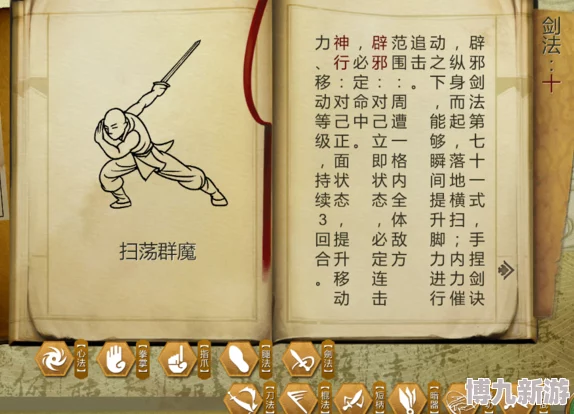 剑法：十
辟邪剑法第七十一式，手捏剑诀
，纵身而起，落地横扫；内力催
动之下，能够瞬间提升脚力进行
追击。
范围：周遭一格内全体敌方
辟邪：对己立即状态，必定连击
，必定命中。
神行：对己正面状态，提升移动
力、移动等级，持续3回合。
扫荡群魔
【心法】
【拳掌】
【指爪】
【腿法】
【剑法】
【刀法】
【棍法】
【短柄】
【暗器】
博九新游